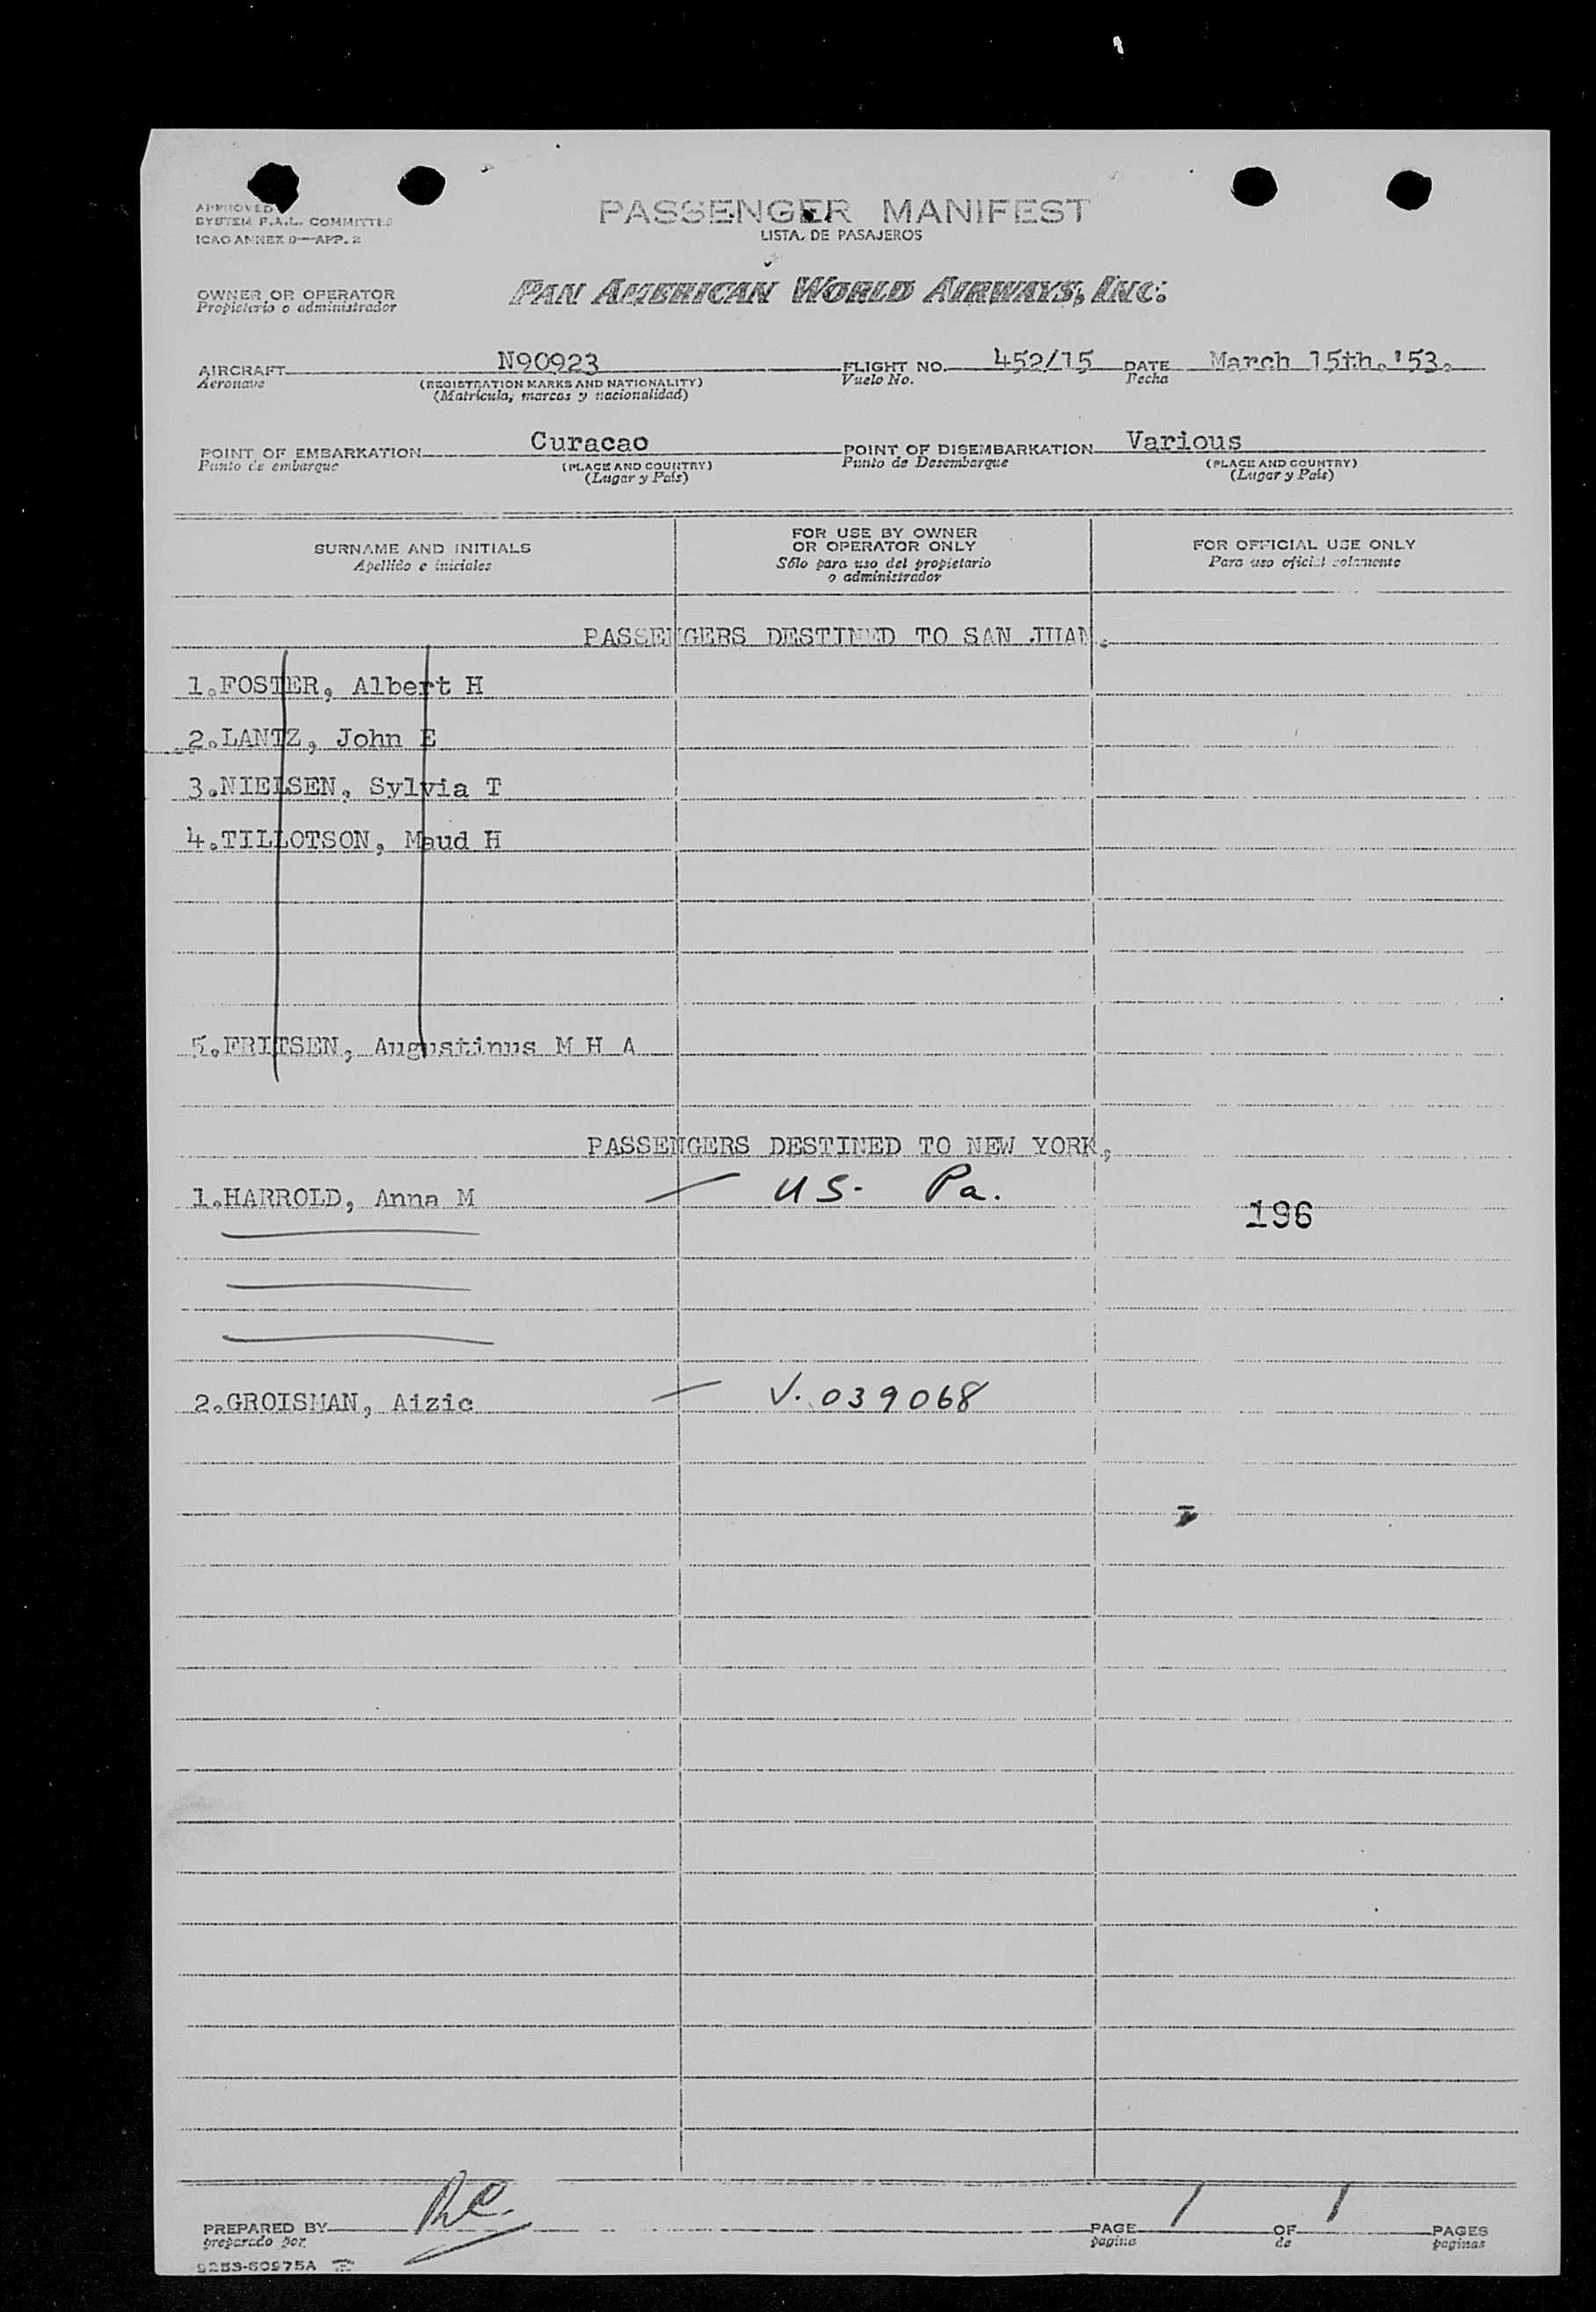 APPROVED
SYSTEM F.A.L. COMMITTEE
ICAO ANNEX 9—APP. 2
PASSENGER MANIFEST
LISTA DE PASAJEROS
OWNER OR OPERATOR
Propietario o administrador
PAN AMERICAN WORLD AIRWAYS, INC.
AIRCRAFT N90923 FLIGHT NO. 452/15 DATE March 15th.'53.
Aeronave (REGISTRATION MARKS AND NATIONALITY) Vuelo No. Fecha
(Matrícula, marcas y nacionalidad)
POINT OF EMBARKATION Curacao POINT OF DISEMBARKATION Various
Punto de embarque (PLACE AND COUNTRY) Punto de Desembarque (PLACE AND COUNTRY)
(Lugar y País) (Lugar y País)
SURNAME AND INITIALS
Apellido e iniciales
FOR USE BY OWNER
OR OPERATOR ONLY
Sólo para uso del propietario
o administrador
FOR OFFICIAL USE ONLY
Para uso oficial solamente
PASSENGERS DESTINED TO SAN JUAN.
1.FOSTER, Albert H
2.LANTZ, John E
3.NIELSEN, Sylvia T
4.TILLOTSON, Maud H
5.FRITSEN, Augustinus M H A
PASSENGERS DESTINED TO NEW YORK,
1.HARROLD, Anna M — US- Pa. 196
2.GROISMAN, Aizic — V. 039068
PREPARED BY PAGE 1 OF 1 PAGES
preparado por pagina de paginas
9253-60975A